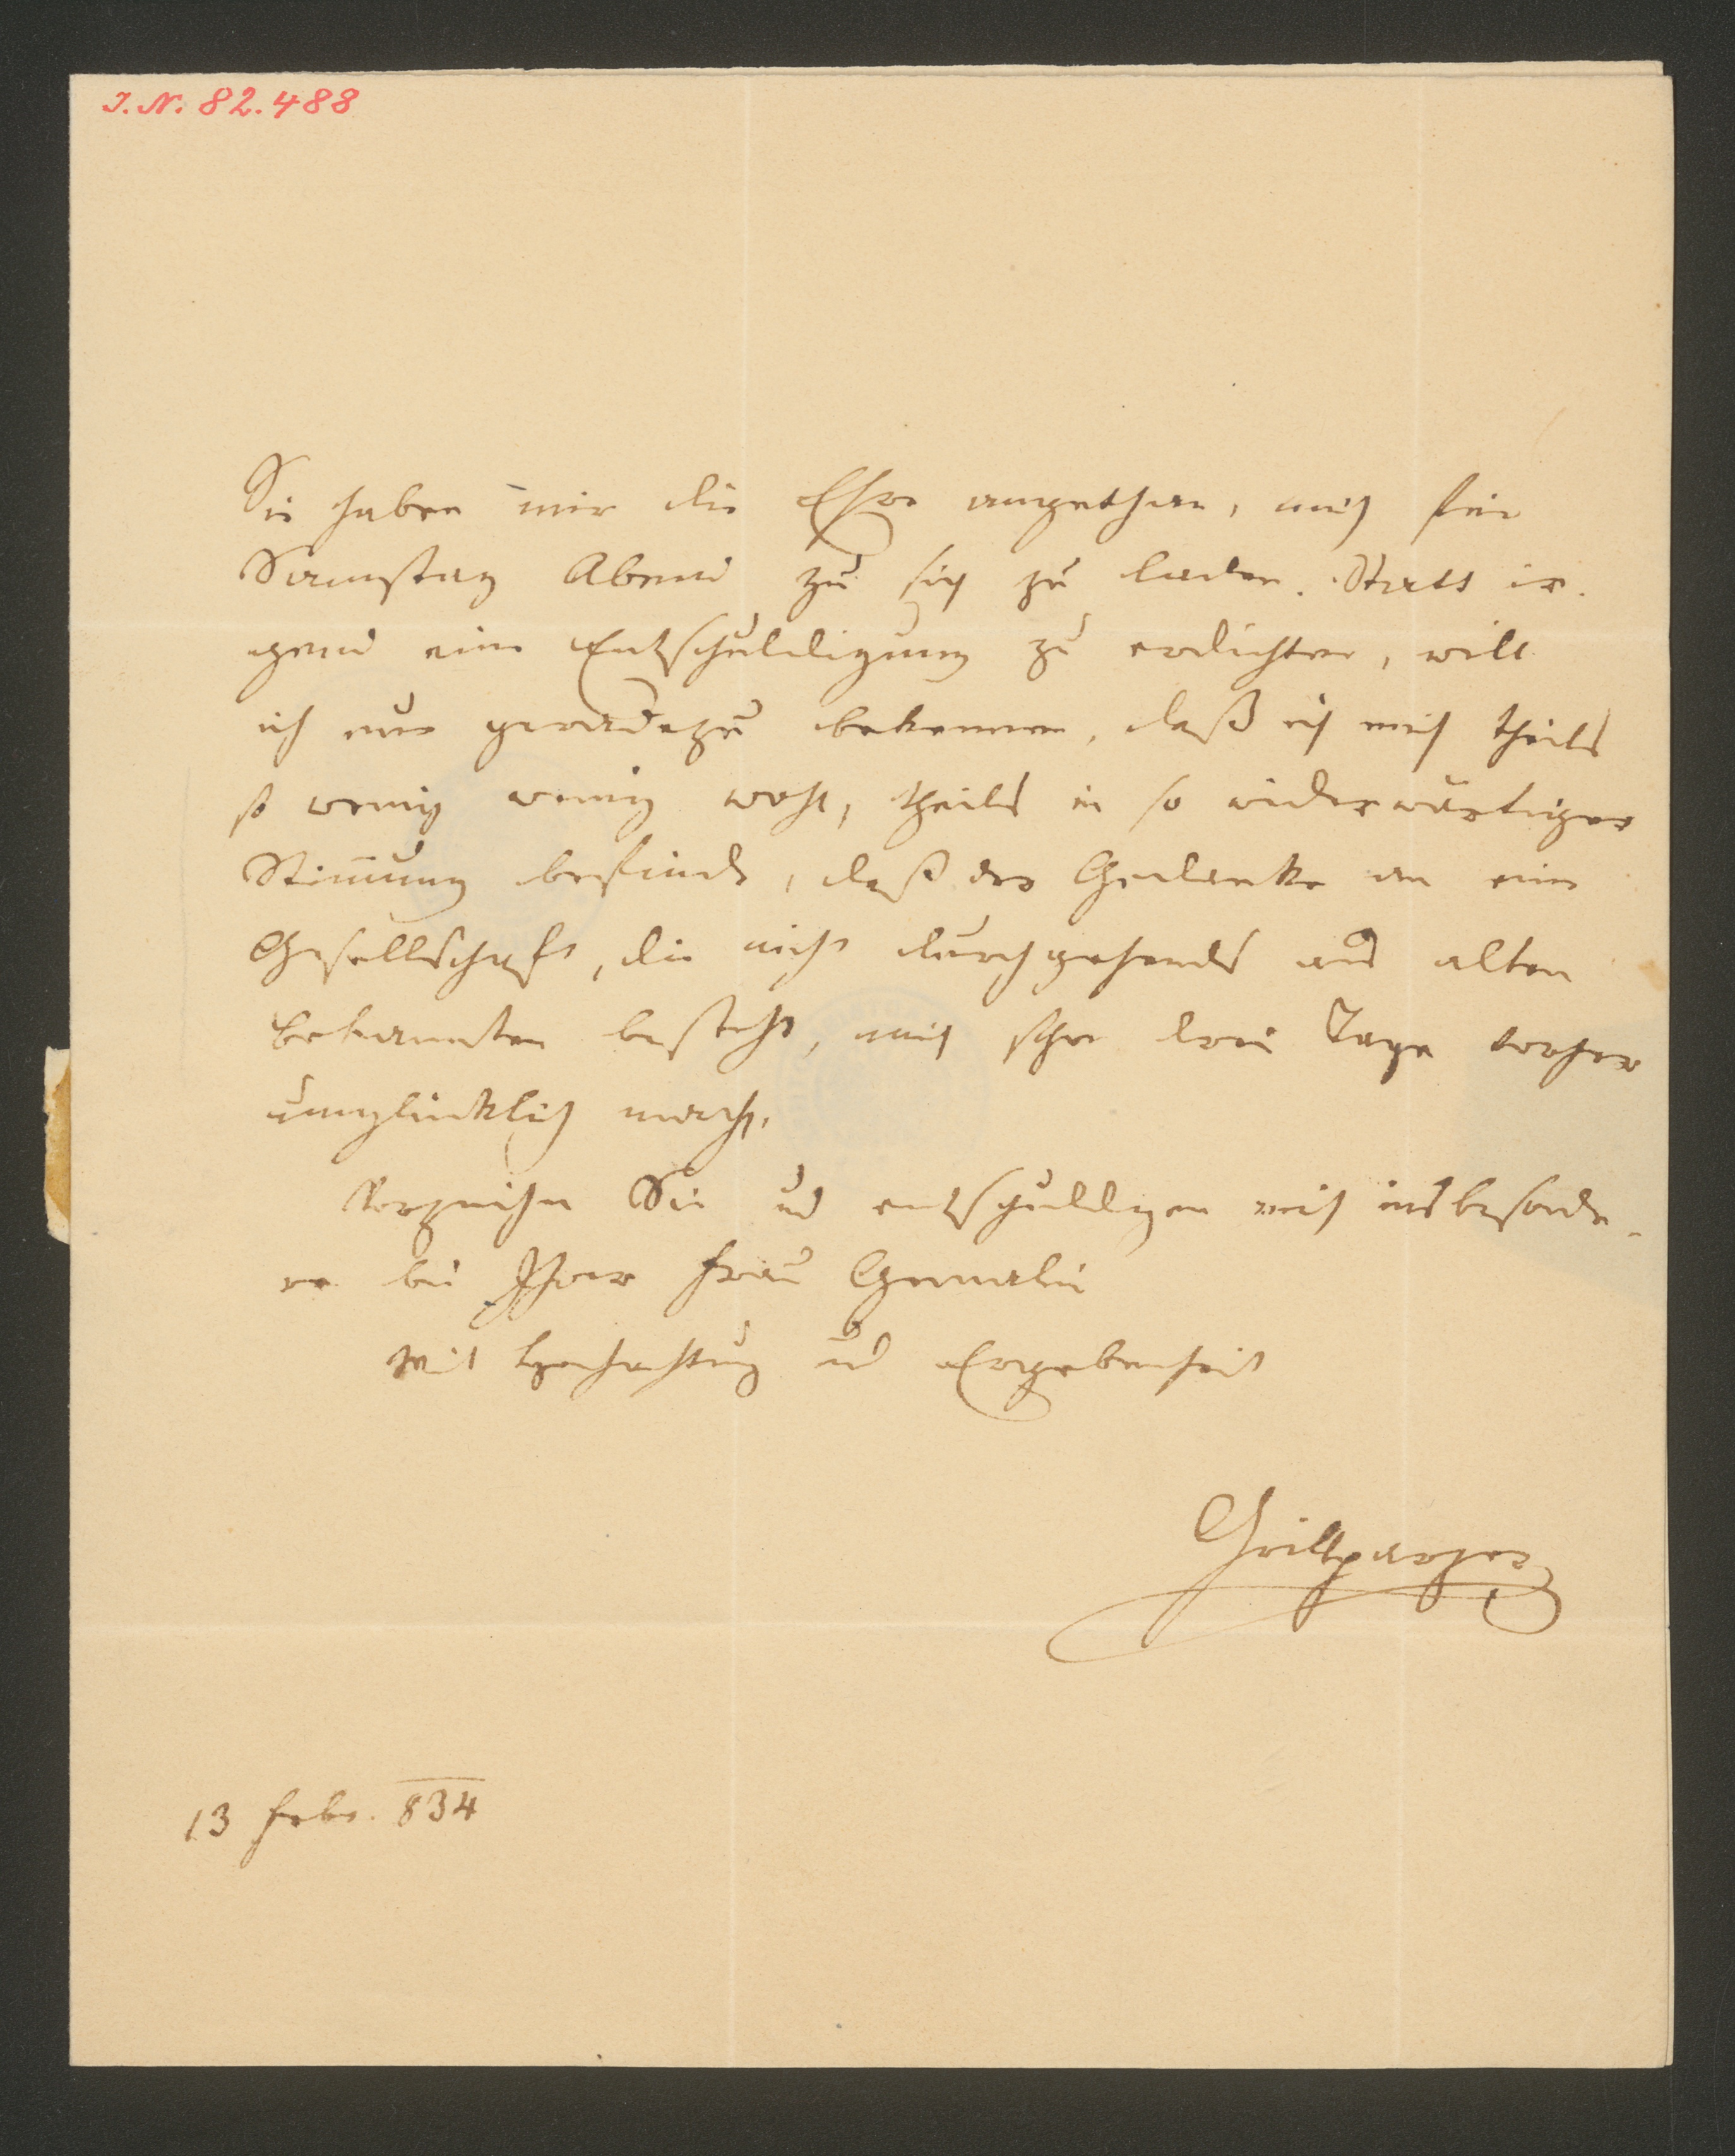 I. N. 82.488
Sie haben mir die Ehre angethan, mich für
Samstag Abend zu sich zu laden. Statt ir-
gend eine Entschuldigung zu erdichten, will
ich nur geradezu bekennen, daß ich mich theils
so wenig wenig wohl, theils in so widerwärtiger
Stimmung befinde, daß der Gedanke an eine
Gesellschaft, die nicht durchgehends aus alten
bekannten besteht, mich schon drei Tage vorher
unglücklich macht.
Verzeihen Sie und entschuldigen mich insbesonde-
re bei Ihrer Frau Gemalin
Mit Hochachtung und Ergebenheit
Grillparzer
13 Febr. 834